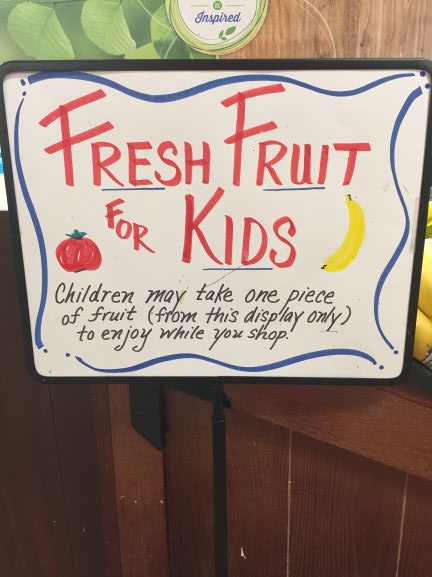 BE
Inspired
FRESH FRUIT
FOR KIDS
Children may take one piece
of fruit (from this display only)
to enjoy while you shop.